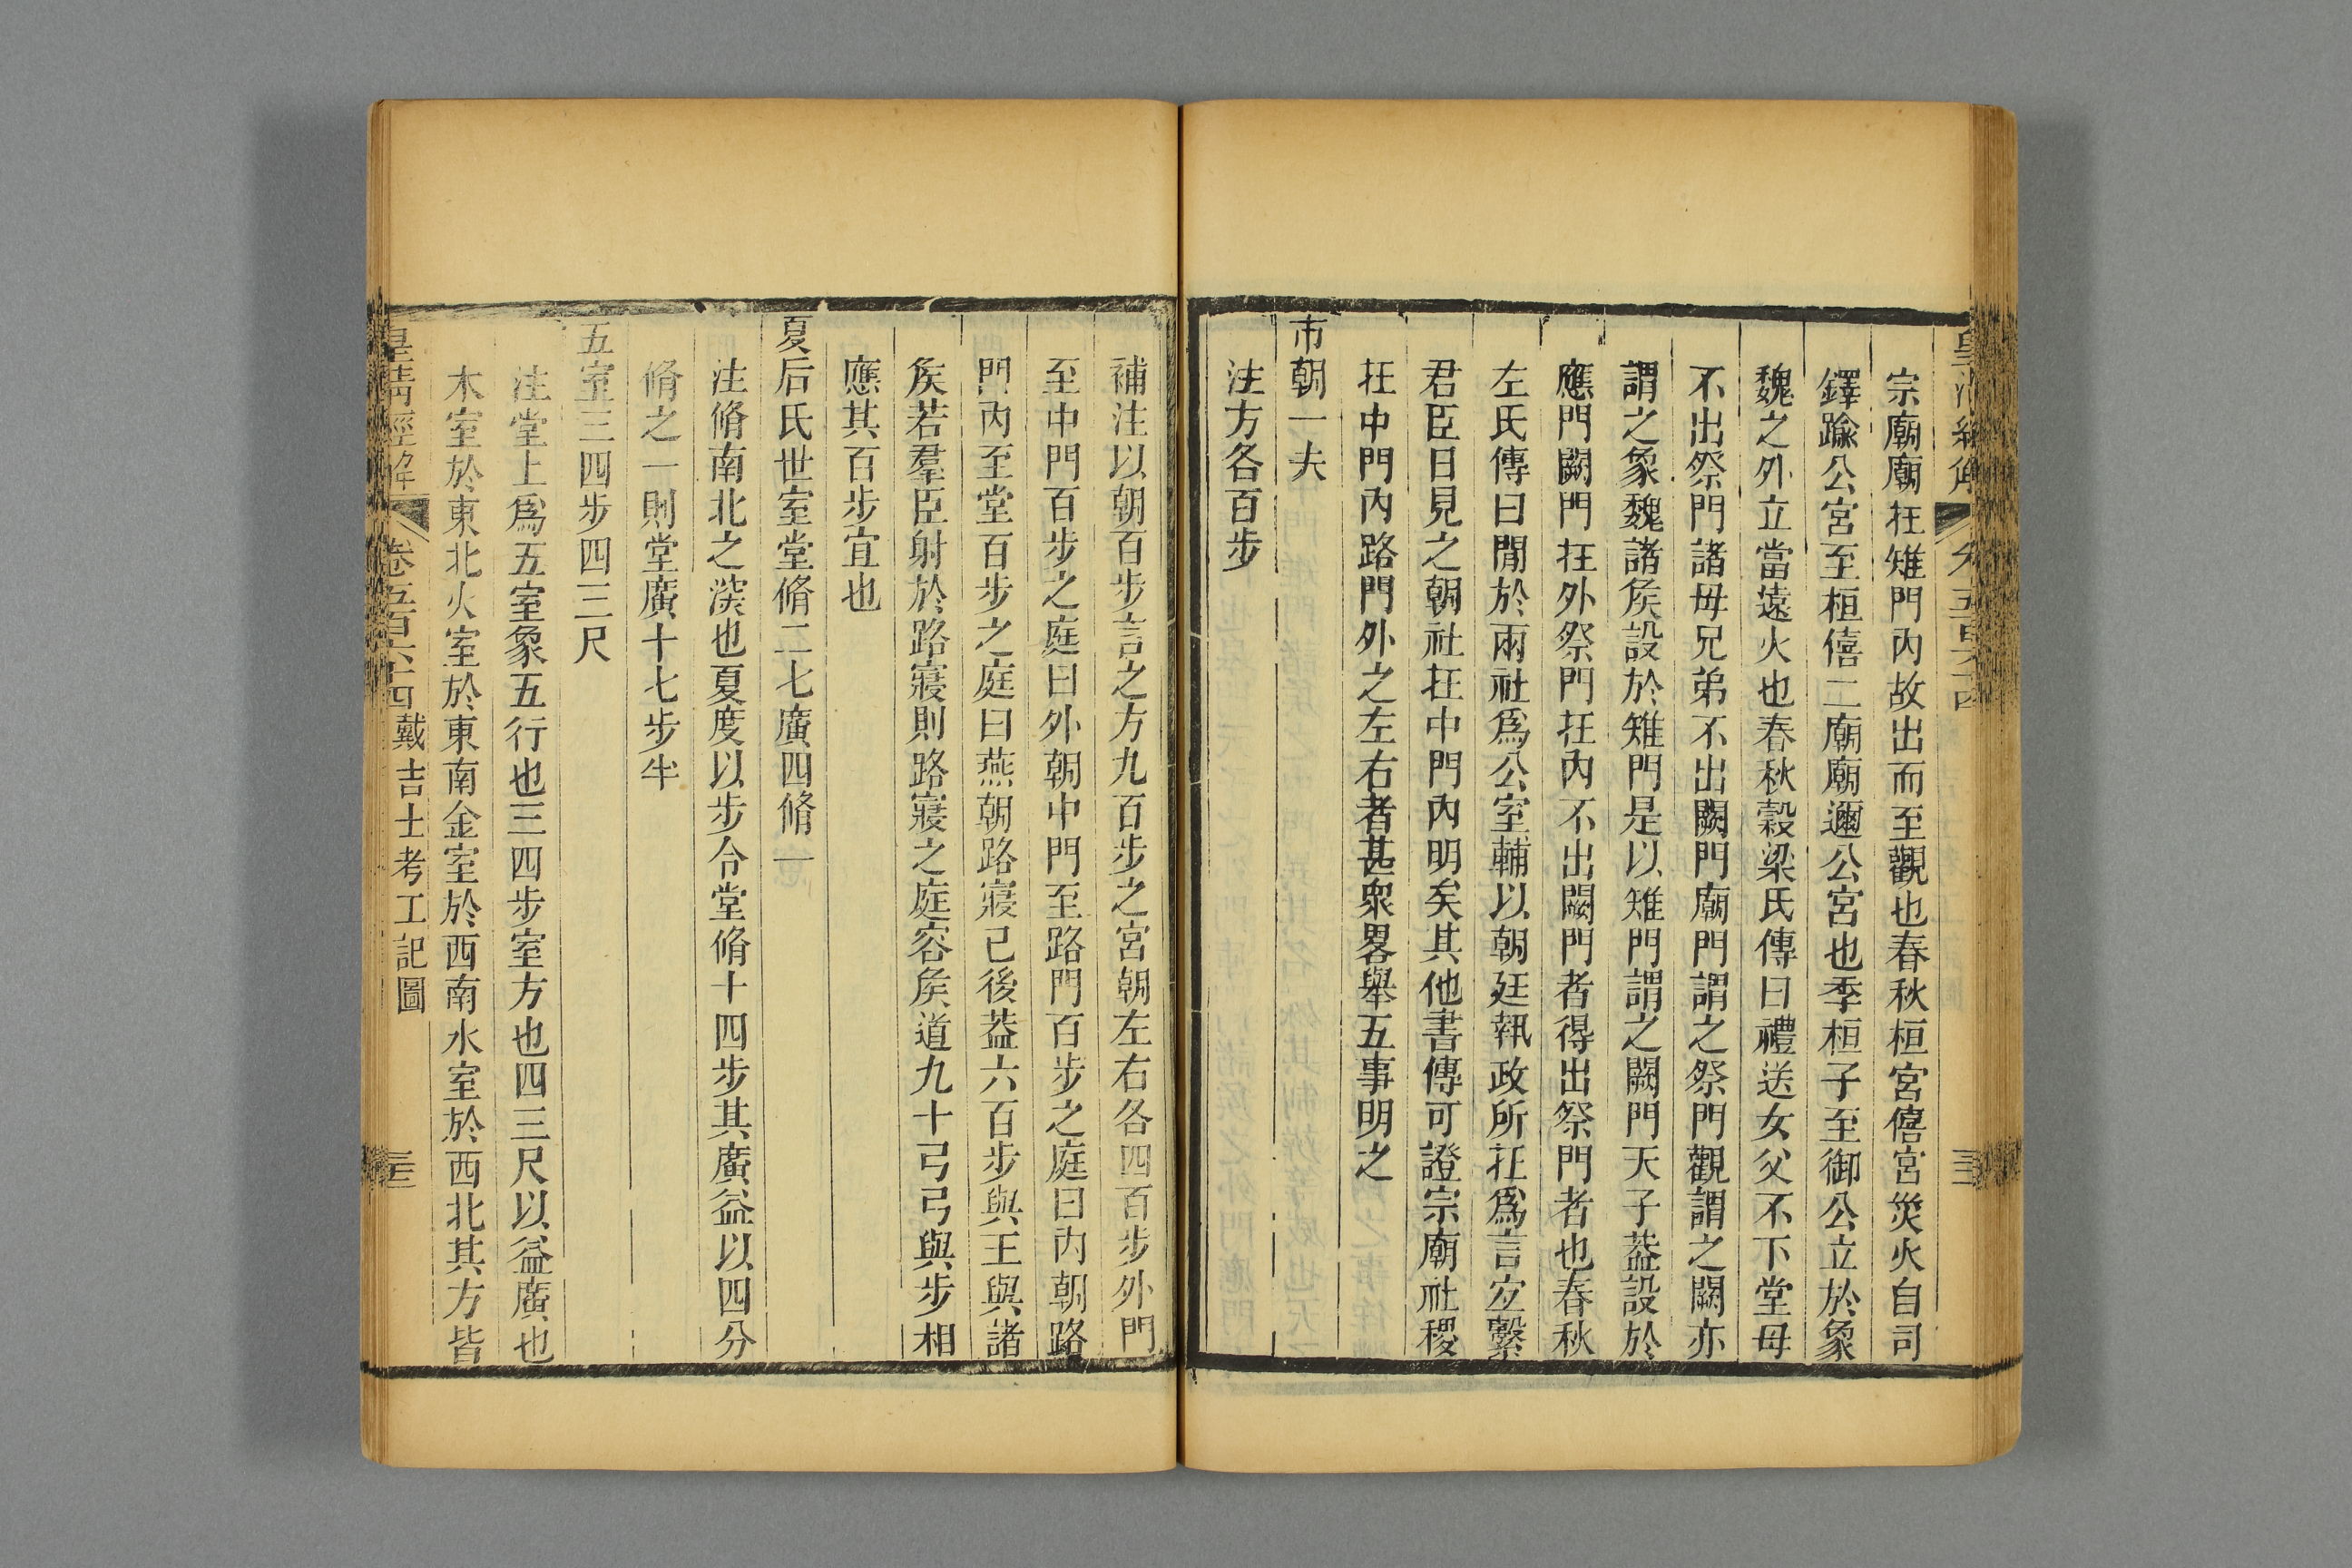 宗廟廟在雉門內故出而至觀也春秋桓宮僖宮災火自司
鐸踰公宮至桓僖二廟廟邇公宮也季桓子至御公立於象
魏之外立當遠火也春秋穀梁氏傳曰禮送女父不下堂母
不出祭門諸母兄弟不出闕門廟門謂之祭門觀謂之闕亦
謂之象魏諸矦設於雉門是以雉門謂之闕門天子葢設於
應門闕門在外祭門在內不出闕門者得出祭門者也春秋
左氏傳曰閒於兩社爲公室輔以朝廷執政所在爲言宐繫
君臣日見之朝社在中門內明矣其他書傳可證宗廟社稷
在中門內路門外之左右者甚衆畧舉五事明之
市朝一夫
注方各百步
補注以朝百步言之方九百步之宮朝左右各四百步外門
至中門百步之庭曰外朝中門至路門百步之庭曰內朝路
門內至堂百步之庭曰燕朝路寢已後葢六百步與王與諸
矦若羣臣射於路寢則路寢之庭容矦道九十弓弓與步相
應其百步宜也
夏后氏世室堂脩二七廣四脩一
注脩南北之深也夏度以步令堂脩十四步其廣益以四分
脩之一則堂廣十七步半
五室三四步四三尺
注堂上爲五室象五行也三四步室方也四三尺以益廣也
木室於東北火室於東南金室於西南水室於西北其方皆
皇清經解 卷五百六十四 戴吉士考工記圖